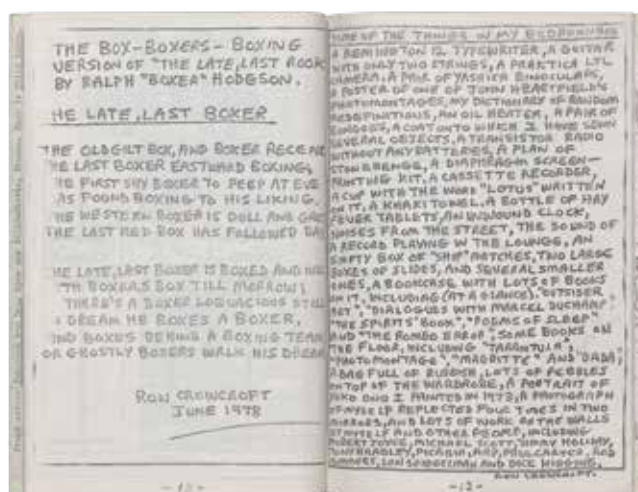 THE BOX-BOXERS- BOXING
VERSION OF "THE LATE, LAST ROOK"
BY RALPH "BOXER" HODGSON.
HE LATE, LAST BOXER
THE OLD GILT BOX, AND BOXER
HE LAST BOXER EASTWARD BOXING;
HE FIRST SHY BOXER TO PEEP AT EVE
AS FOUND BOXING TO HIS LIKING.
HE WESTERN BOXER IS DULL AND
THE LAST RED BOX HAS FOLLOWED
HE LATE, LAST BOXER IS BOXED AND
TH BOXERS BOX TILL MORROW;
THERE'S A BOXER LOQUACIOUS STILL
DREAM HE BOXES A BOXER,
AND BOXES BEHIND A BOXING TEAM
OR GHOSTLY BOXERS WALK HIS DREAM
RON CROWCROFT
JUNE 1978
SOME OF THE THINGS IN MY
A REMINGTON 12 TYPEWRITER, A GUITAR
WITH ONLY TWO STRINGS, A PRAKTICA LTL
CAMERA, A PAIR OF YASHICA BINOCULARS,
A POSTER OF ONE OF JOHN HEARTFIELD'S
PHOTOMONTAGES, MY DICTIONARY OF RANDOM
REDEFINITIONS, AN OIL HEATER, A PAIR OF
A COAT ONTO WHICH I HAVE SEWN
SEVERAL OBJECTS, A TRANSISTOR RADIO
WITHOUT ANY BATTERIES, A PLAN OF
STONEHENGE, A DIAPHRAGM SCREEN-
PRINTING KIT, A CASSETTE RECORDER,
A CUP WITH THE WORD "LOTUS" WRITTEN
ON IT, A KHAKI TOWEL, A BOTTLE OF HAY
FEVER TABLETS, AN UNWOUND CLOCK,
NOISES FROM THE STREET, THE SOUND OF
A RECORD PLAYING IN THE LOUNGE, AN
EMPTY BOX OF "SHIP" MATCHES, TWO LARGE
BOXES OF SLIDES, AND SEVERAL SMALLER
ONES, A BOOKCASE WITH LOTS OF BOOKS
IN IT, INCLUDING (AT A GLANCE), "OUTSIDER
ART", "DIALOGUES WITH MARCEL DUCHAMP,
"THE SPIRITS' BOOK", "POEMS OF SLEEP"
AND "THE ROMEO ERROR", SOME BOOKS ON
THE FLOOR, INCLUDING "TARANTULA",
"PHOTOMONTAGE", "MAGRITTE" AND "DADA",
A BAG FULL OF RUBBISH, LOTS OF PEBBLES
ON TOP OF THE WARDROBE, A PORTRAIT OF
YOKO ONO I PAINTED IN 1973, A PHOTOGRAPH
OF MYSELF REFLECTED FOUR TIMES IN TWO
MIRRORS, AND LOTS OF WORK ON THE WALLS
BY MYSELF AND OTHER PEOPLE, INCLUDING
ROBERT JOYCE, MICHAEL SCOTT,
TONY BRADLEY, PICABIA, ARP, PAUL CARTER, ROD
AND DICK HIGGINS.
RON CROWCROFT.
-12-